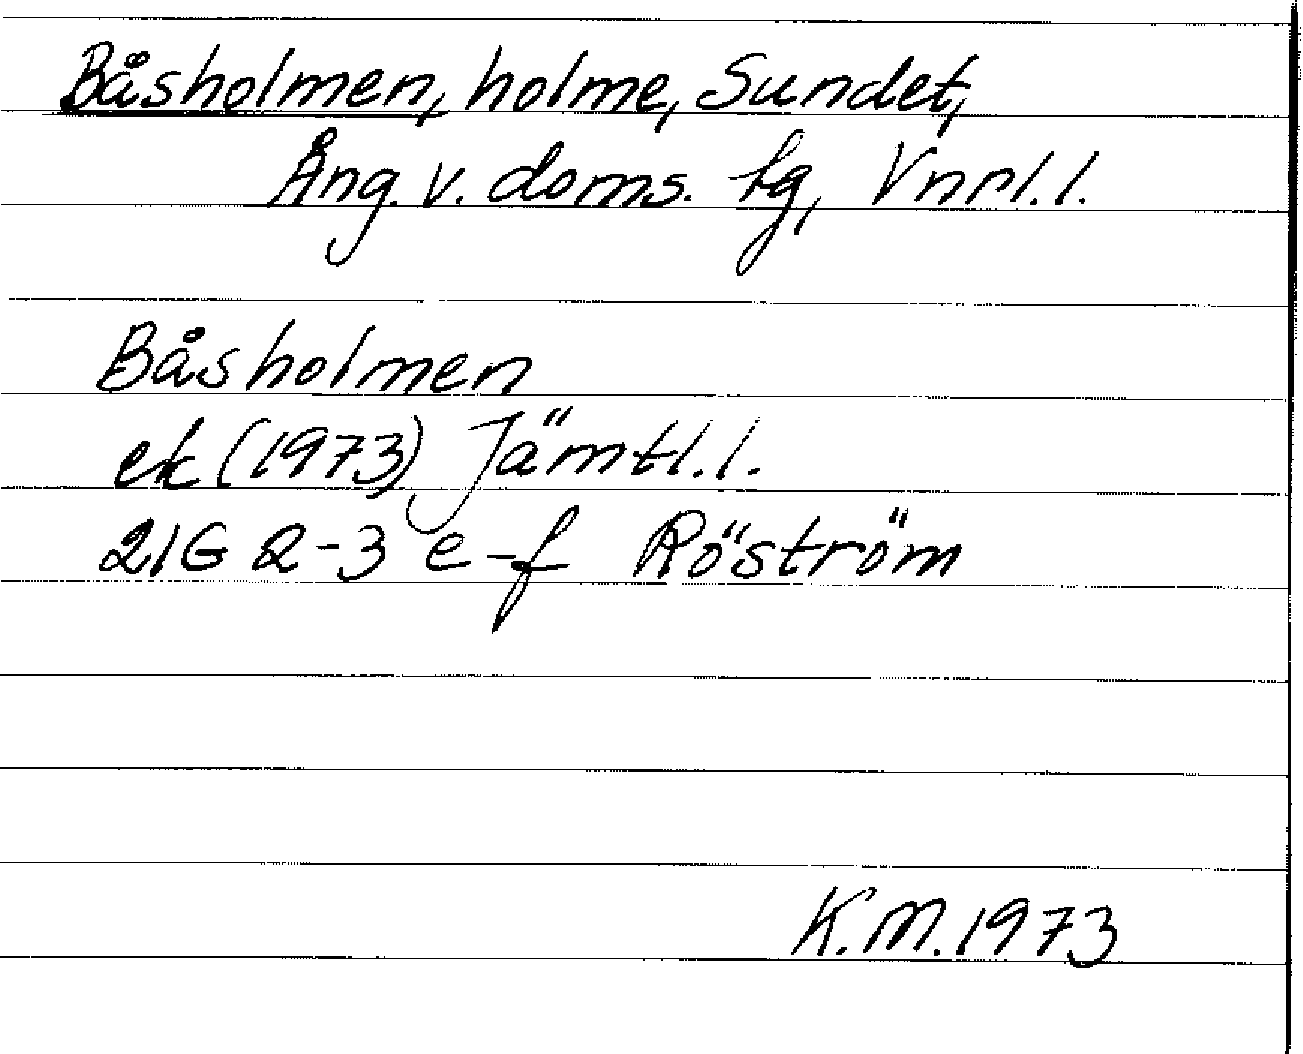 Båsholmen, holme, Sundet,
Ång. v. doms. tg, Vnrl. l.
Båsholmen
ek (1973) Jämtl. l.
21G 2-3 e-f Röström
K.M. 1973